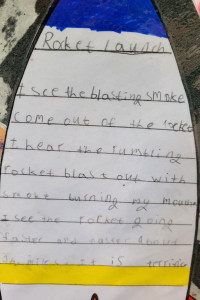 Rocket Launch
I see the blasting smoke
come out of the rocket
I hear the rumbling
rocket blast out with
smoke burning my mouth
I see the rocket going
and
it is